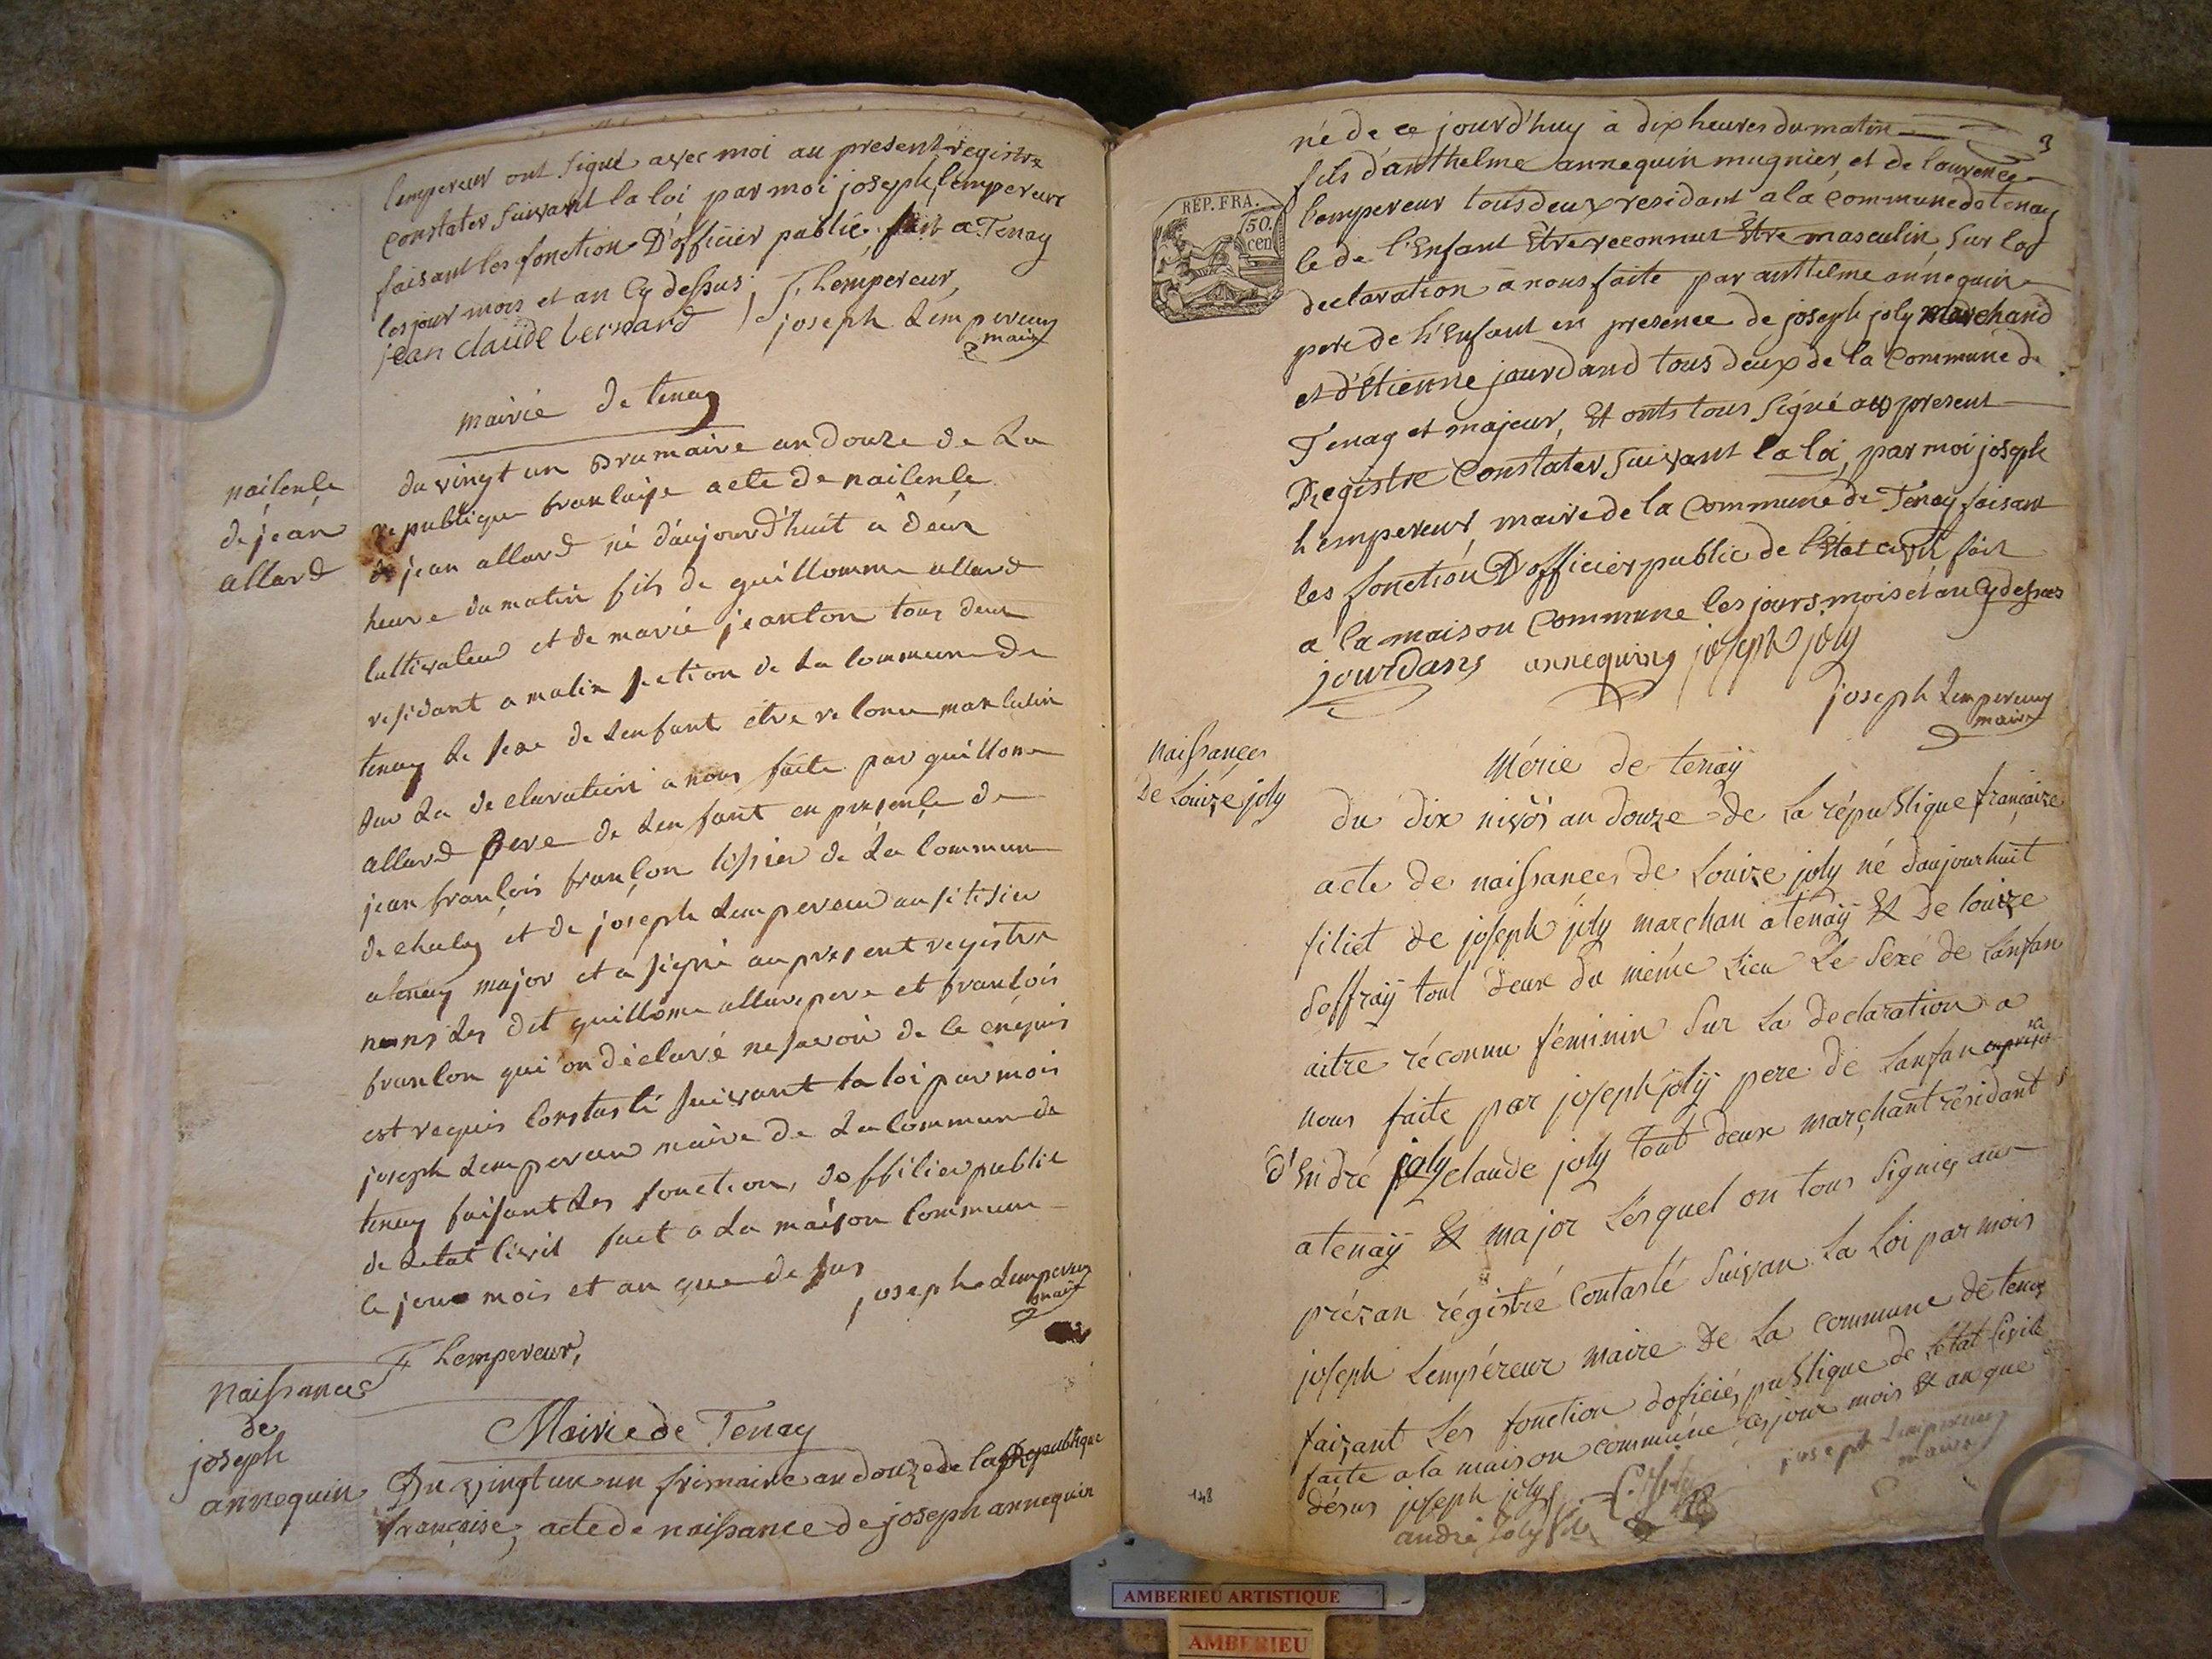 lempereur ont signé avec moi au present registre
constater suivant la loi par moi joseph lempereur
faisant les fonction D'officier public. fait a Tenay
les jour mois et an Cy dessus, F. Lempereur,
jean claude bernard joseph Lempereur
maire
mairie de tenay
naisence
de jean
allard
du vingt un Brumaire an douze de La
republique francaise acte de naisence
de jean allard né d'aujourd'huit à deux
heure du matin fils de guillomme allard
cultivateur et de marie jeanton tous deux
residant a malix section de La commune de
tenay Le sexe de Lenfant etre reconu masculin
sur La declaration a nous faite par guillome
allard pere de Lenfant en presence de
jean françois françon tissier de La commune
de chaley et de joseph Lempereur
atenay major et a signé au present registre
nons Les dit guillome allard pere et françois
franson qui on déclaré ne savoir de ce enquis
est requis constasté suivant la loi par mois
joseph Lempereur maire de La commune de
tenay faisant Les fonction, dofficier public
de Letat civil fact a La maison commune
ce jour mois et an que de sus
joseph Lempereur
maire
F Lempereur,
Naissance
de
joseph
annequin
Mairie de Tenay
Du vingt un frimaire an douze de la Republique
française, acte de naissance de joseph annequin
3
né de ce jourd'huy à dix heures du matin
fils d'anthelme annequin mugnier, et de laurence
Lempereur tous deux residant a la commune de tenay
REP. FRA.
50.
cen
le de l'Enfant Etre reconnut Etre masculin, sur la
declaration a nous faite par anthelme annequin
pere de L'Enfant en presence de joseph joly marchand
et d'Étienne jourdand tous deux de la commune de
Tenay et majeur, Et onts tous signé au present
Registre Constater suivant la loi, par moi joseph
Lempereur, maire de la Commune de Tenay faisant
les fonction D'officier public de l'Etat civil, fait
a la maison Commune les jours, mois et an Cy dessus
jourdans annequing joseph joly
joseph Lempereur
maire
Naissances
De Louize joly
Mérie de tenaÿ
du dix nivôs an douze de La république françaize
acte de naissances de Louize joly né daujourhuit
filiet de joseph joly marchan atenaÿ Et De louize
soffraÿ tout deux du même Lieu Le sexe de Lanfan
aitre réconnu féminin sur La declaration a
nous faite par joseph jolÿ pere de Lanfan
d'Endré joly claude joly tout deux marchant résidant
atenaÿ Et major Lesquel on tous signié au
prézan régistre contasté suivan La Loi par mois
joseph Lempéreur maire De La commune de tenay
faizant Les fonction doficié publique de Létat civile
faite a la maison commune ces jour mois Et an que
désus joseph joly
joseph Lempereur
maire
andré joly
148
AMBERIEU ARTISTIQUE
AMBERIEU